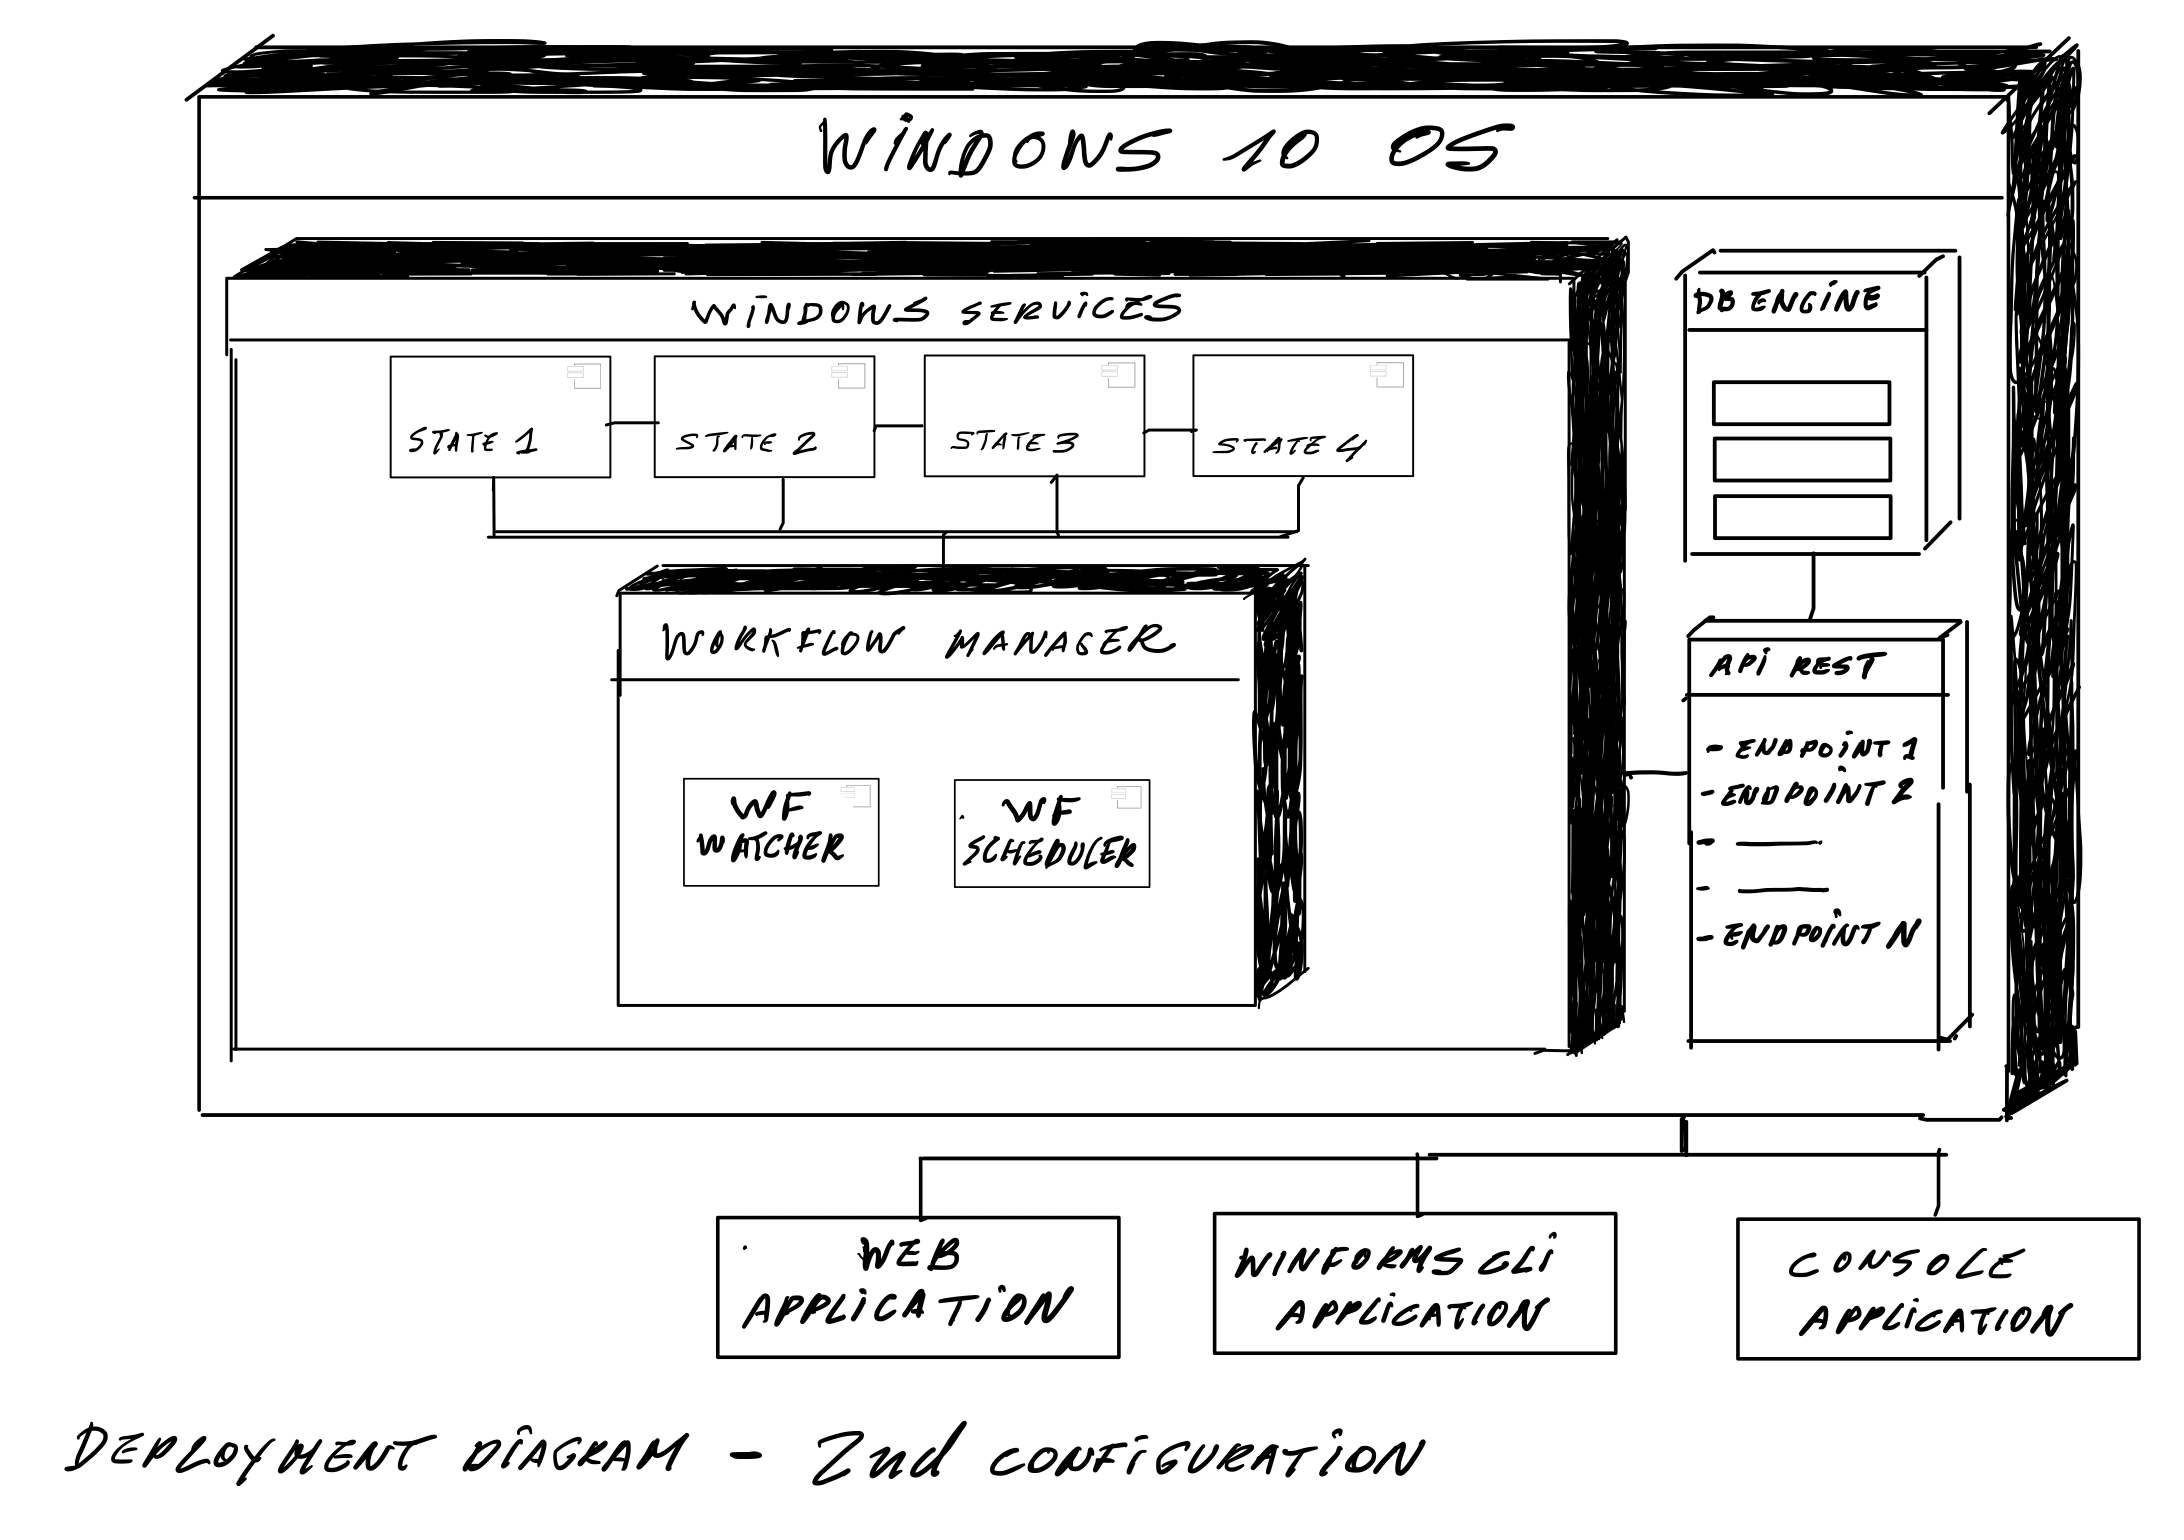 WINDOWS 10 OS
WINDOWS SERVICES
DB ENGINE
STATE 1
STATE 2
STATE 3
STATE 4
WORKFLOW MANAGER
WF
WATCHER
WF
SCHEDULER
API REST
- ENDPOINT 1
- ENDPOINT 2
-
-
- ENDPOINT N
WEB
APPLICATION
WINFORMS CLI
APPLICATION
CONSOLE
APPLICATION
DEPLOYMENT DIAGRAM - 2nd CONFIGURATION